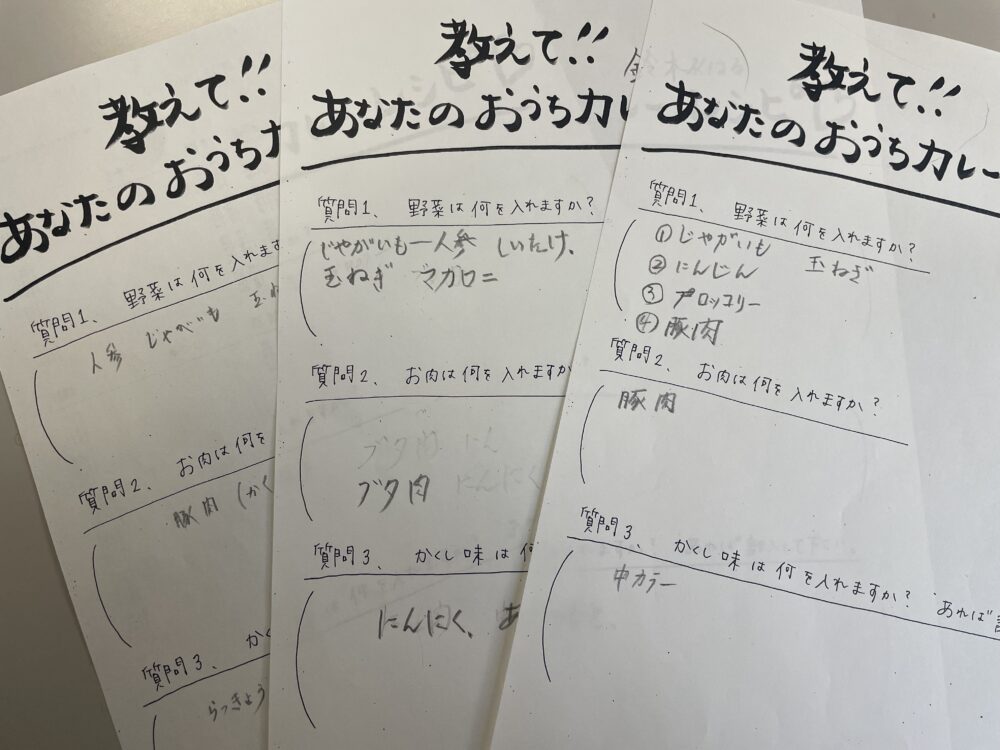 教えて!!
あなたの おうちカ
質問1、 野菜は何を入れます
人参 じゃがいも 玉ね
質問2、 お肉は何を
豚肉 (かく
質問3、 かく
らっきょう
教えて!!
あなたの おうちカレ
質問1、 野菜は何を入れますか?
じゃがいも一人参 しいたけ、
玉ねぎ マカロニ
質問2、 お肉は何を入れますか
ブタ肉 にん
ブタ肉 にんにく
質問3 かくし味は何
にんにく、 あ
教えて!!
あなたの おうちカレー
質問1、 野菜は何を入れますか?
①じゃがいも 玉ねぎ
②にんじん
③ブロッコリー
④豚肉
質問2、 お肉は何を入れますか?
豚肉
質問3、 かくし味は何を入れますか? あれば
中カラー